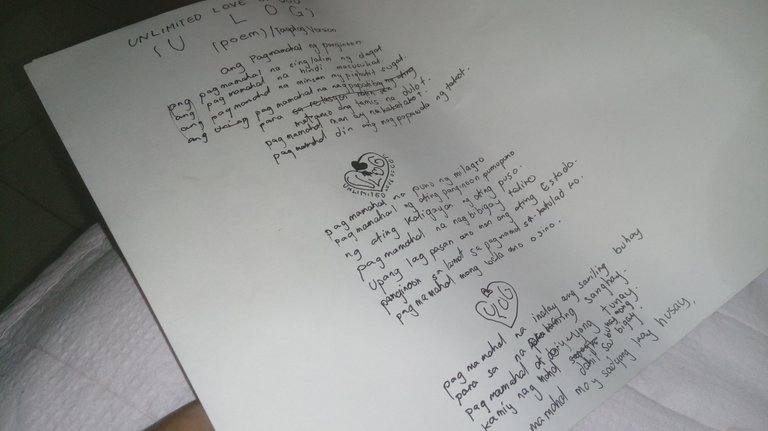 UNLIMITED LOVE OF GOD
(U LOG)
(poem)/Tagalog Version
ang Pagmamahal ng panginoon
ang pagmamahal na sing lalim ng dagat
ang pagmamahal na hindi masusukat.
ang pagmamahal na minsan my pighati't sugat
ang pagmamahal na nagpapatibay ng ating
para
matamo ang tamis na dulot.
pagmamahal man ay nakakatakot.
pagmamahal din ang mag papawala ng takot.
ULOG
UNLIMITED LOVE OF GOD
pagmamahal na puno ng milagro
pagmamahal ng ating panginoon pumupuno
ng ating kaligayan ng ating puso.
pagmamahal na nagbibigay talino
upang lag pasan ano man ang ating Estado.
panginoon sa lamat sa pagmamahal katulad to.
pagmamahal mong wala ano o sino.
ULOG
pagmamahal na inalay ang sariling buhay
para sa na sanghay.
pagmamahal at tunay.
kamiy nag mahal dahil sa bigay.
mamahal moy saiyong kay husay.